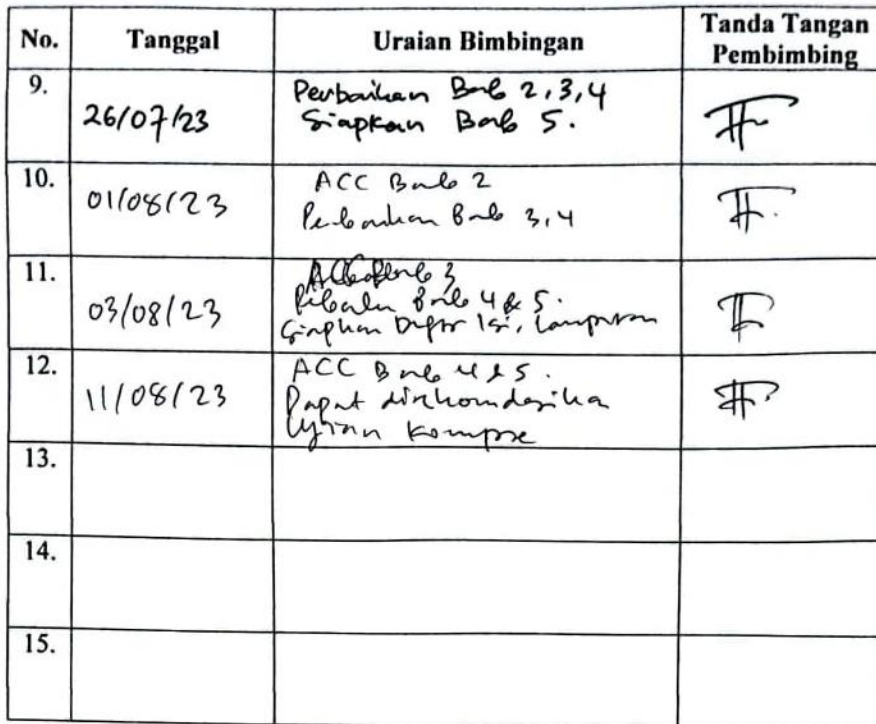 No. Tanggal Uraian Bimbingan Tanda Tangan Pembimbing
9. 26/07/23 Perbaikan Bab 2,3,4
Siapkan Bab 5.
10. 01/08/23 ACC Bab 2
Perbaikan Bab 3,4
11. 03/08/23 ACC Bab 3
Bab 4 & 5.
Siapkan Daftar Isi, Lampiran
12. 11/08/23 ACC Bab 4 & 5.
Dapat direkomendasikan
Ujian Kompre
13.
14.
15.